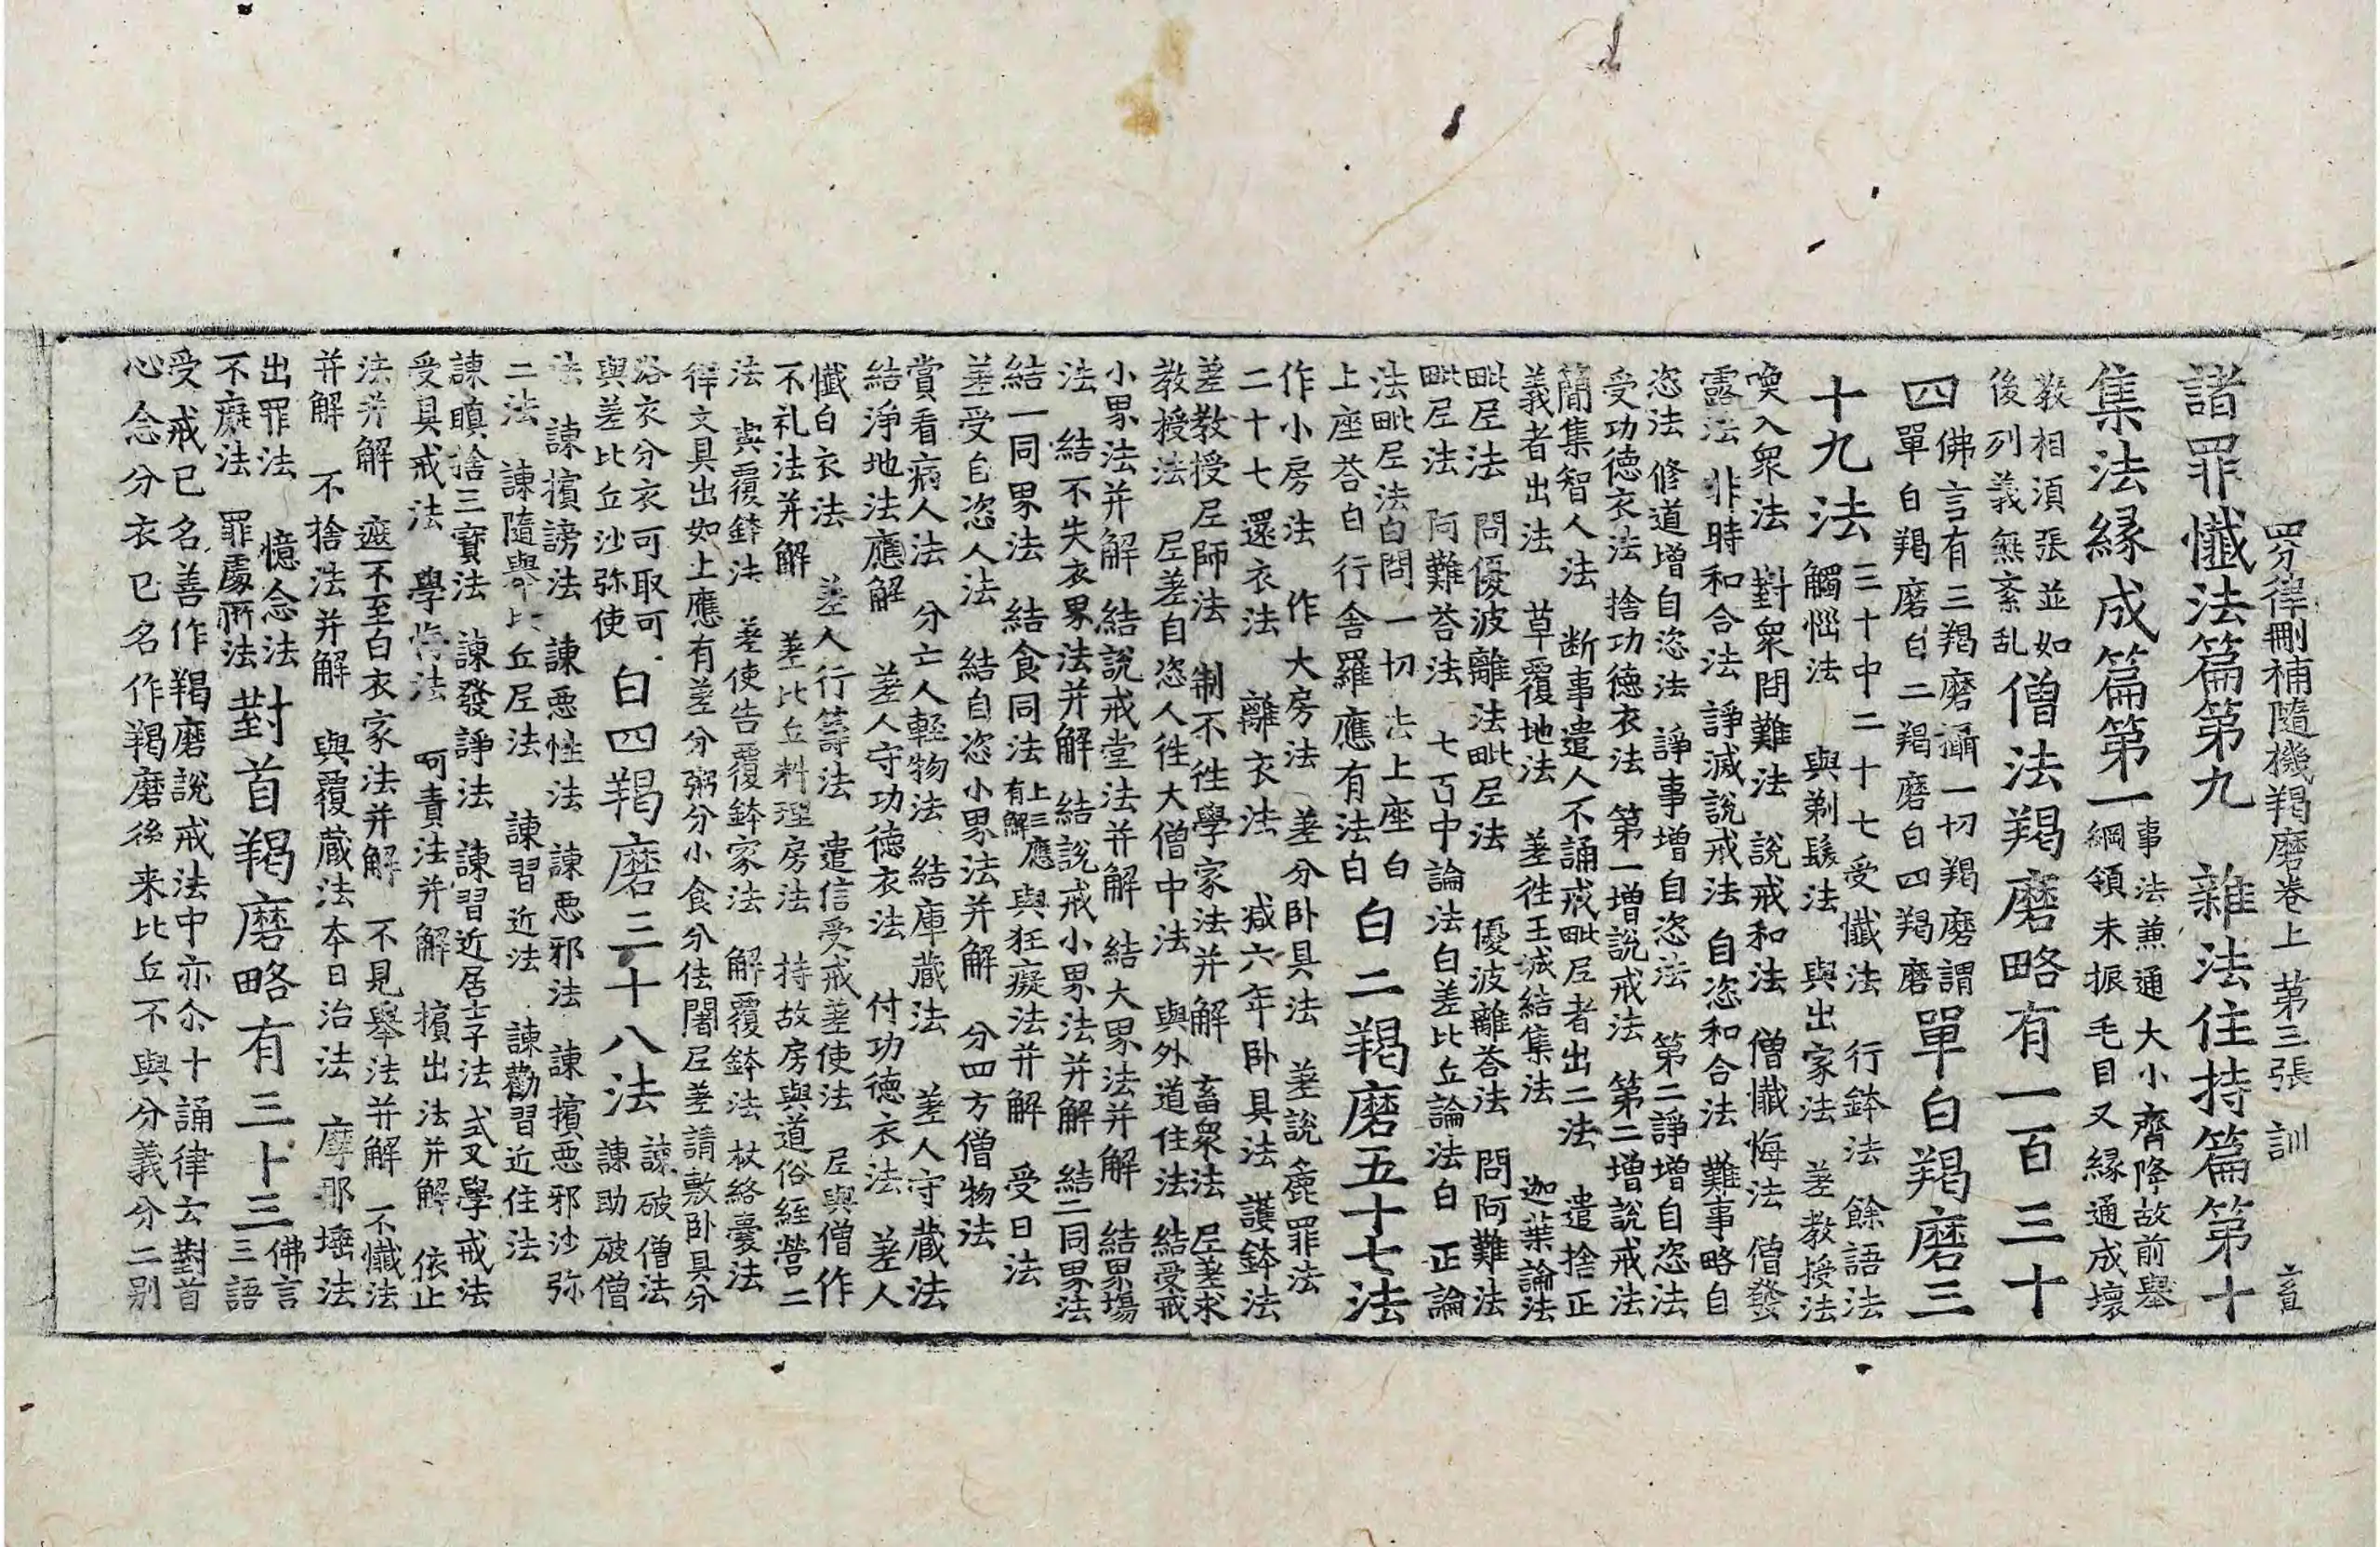 四分律刪補隨機羯磨卷上 第三張 訓
諸罪懺法篇第九 雜法住持篇第十
集法緣成篇第一
事法兼通大小齊降故前舉
綱領未振毛目又緣通成壞
教相須張並如
後列義無紊乱
僧法羯磨略有一百三十
四
佛言有三羯磨攝一切羯磨謂
單白羯磨白二羯磨白四羯磨
單白羯磨三
十九法
三十中二十七受懺法 行鉢法 餘語法
觸惱法 與剃髮法 與出家法 差教授法
喚入衆法 對衆問難法 說戒和法 僧懺悔法 僧發
露法 非時和合法 諍滅說戒法 自恣和合法 難事略自
恣法 修道增自恣法 諍事增自恣法 第二諍增自恣法
受功德衣法 捨功德衣法 第一增說戒法 第二增說戒法
簡集智人法 断事遣人不誦戒毗尼者出二法 遣捨正
義者出法 草覆地法 差往王城結集法 迦葉論法
毗尼法 問優波離法毗尼法 優波離荅法 問阿難法
毗尼法 阿難荅法 七百中論法白差比丘論法白 正論
法毗尼法白問一切去上座白
上座荅白行舍羅應有法白
白二羯磨五十七法
作小房法 作大房法 差分卧具法 差說麁罪法
二十七還衣法 離衣法 減六年卧具法 護鉢法
差教授尼師法 制不往學家法并解 畜衆法 尼差求
教授法 尼差自恣人往大僧中法 與外道住法 結受戒
小界法并解 結說戒堂法并解 結大界法并解 結界場
法 結不失衣界法并解 結說戒小界法并解 結二同界法
結一同界法 結食同法 上三應有解 與狂癡法并解 受日法
差受自恣人法 結自恣小界法并解 分四方僧物法
賞看病人法 分亡人輕物法 結庫藏法 差人守藏法
結淨地法應解 差人守功德衣法 付功德衣法 差人
懺白衣法 差人行籌法 遣信受戒差使法 尼與僧作
不礼法并解 差比丘料理房法 持故房與道俗經營二
法 與覆鉢法 差使告覆鉢家法 解覆鉢法 杖絡囊法
律文具出如上應有差分粥分小食分佉闍尼差請敷卧具分
浴衣分衣可取可
與差比丘沙弥使
白四羯磨三十八法
諫破僧法
諫助破僧
法 諫擯謗法 諫惡性法 諫惡邪法 諫擯惡邪沙弥
二法 諫隨舉比丘尼法 諫習近法 諫勸習近住法
諫瞋捨三寶法 諫發諍法 諫習近居士子法 式叉學戒法
受具戒法 學悔法 呵責法并解 擯出法并解 依止
法并解 遮不至白衣家法并解 不見舉法并解 不懺法
并解 不捨法并解 與覆藏法本日治法 摩那埵法
出罪法 憶念法
不癡法 罪處所法
對首羯磨略有三十三
佛言
三語
受戒已名善作羯磨說戒法中亦尒十誦律云對首
心念分衣已名作羯磨後来比丘不與分義分二別